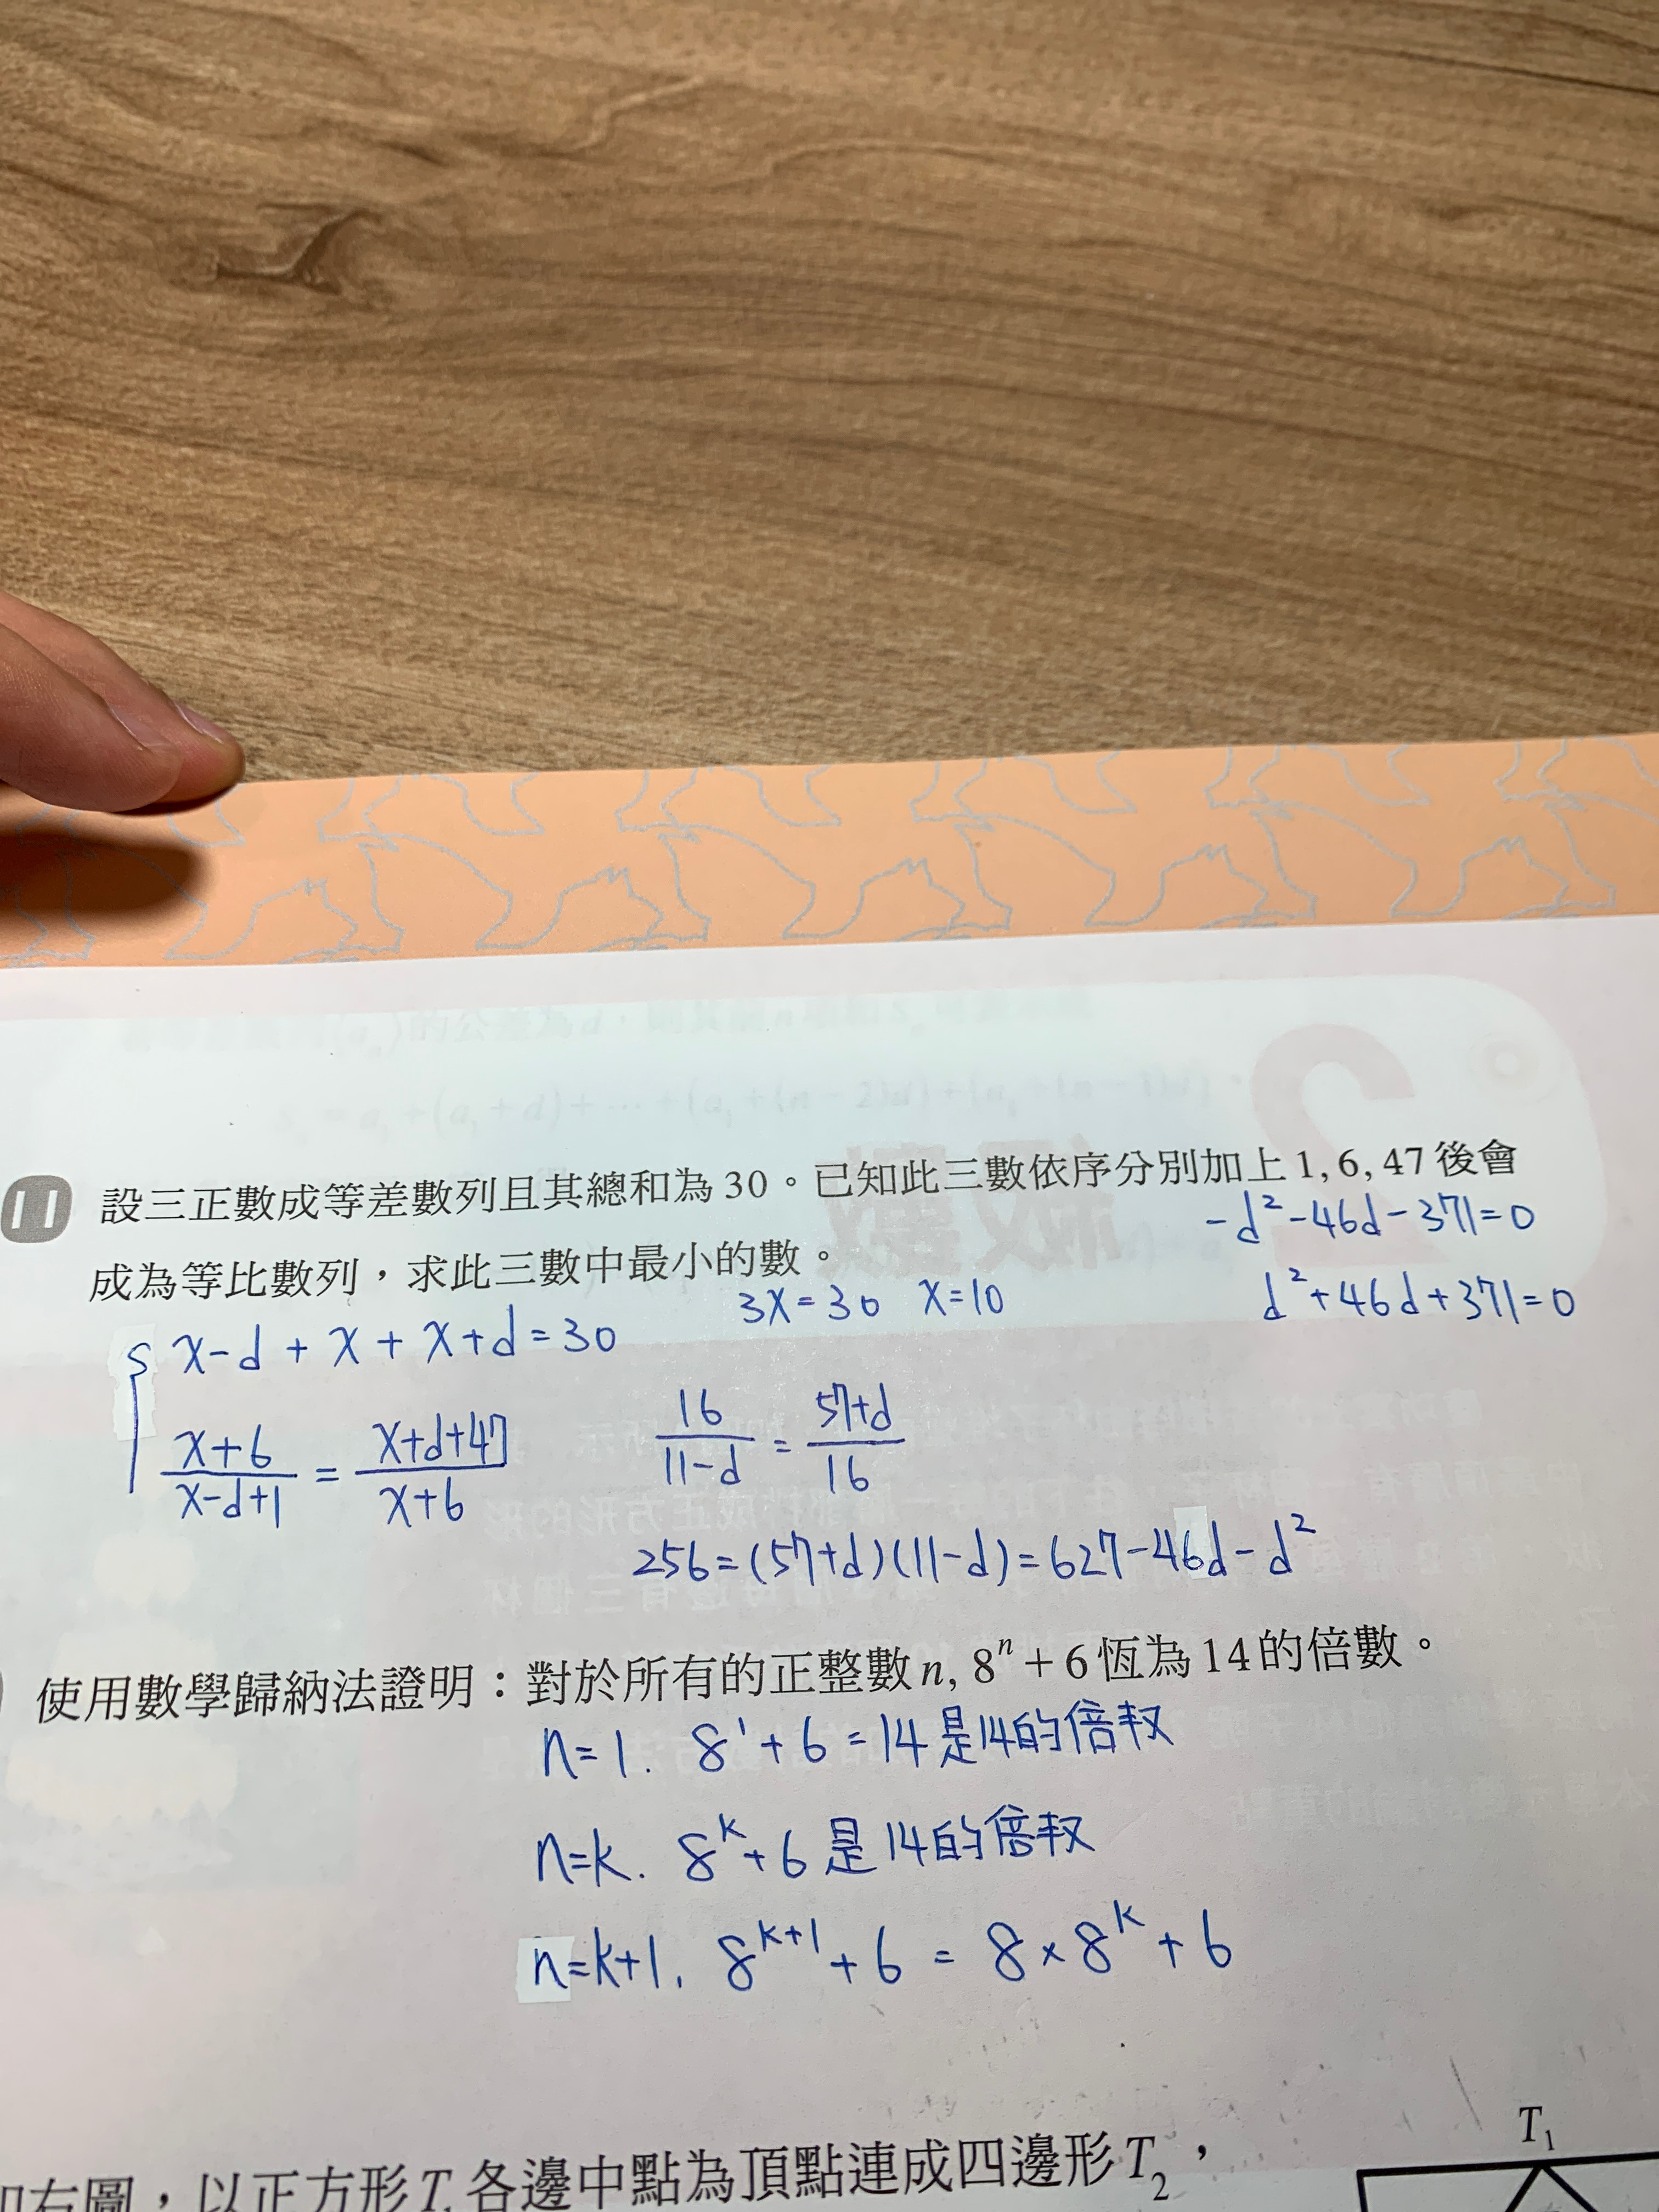 11 設三正數成等差數列且其總和為30。已知此三數依序分別加上1, 6, 47後會
成為等比數列，求此三數中最小的數。
-d²-46d-371=0
d²+46d+371=0
3x=30 x=10
x-d + x + x+d = 30
(x+6)/(x-d+1) = (x+d+47)/(x+6)
16/(11-d) = (57+d)/16
256=(57+d)(11-d)=627-46d-d²
使用數學歸納法證明：對於所有的正整數n, 8ⁿ+6恆為14的倍數。
n=1. 8¹+6=14是14的倍数
n=k. 8ᵏ+6是14的倍数
n=k+1. 8ᵏ⁺¹+6 = 8×8ᵏ+6
T₁
如右圖，以正方形T₁各邊中點為頂點連成四邊形T₂，